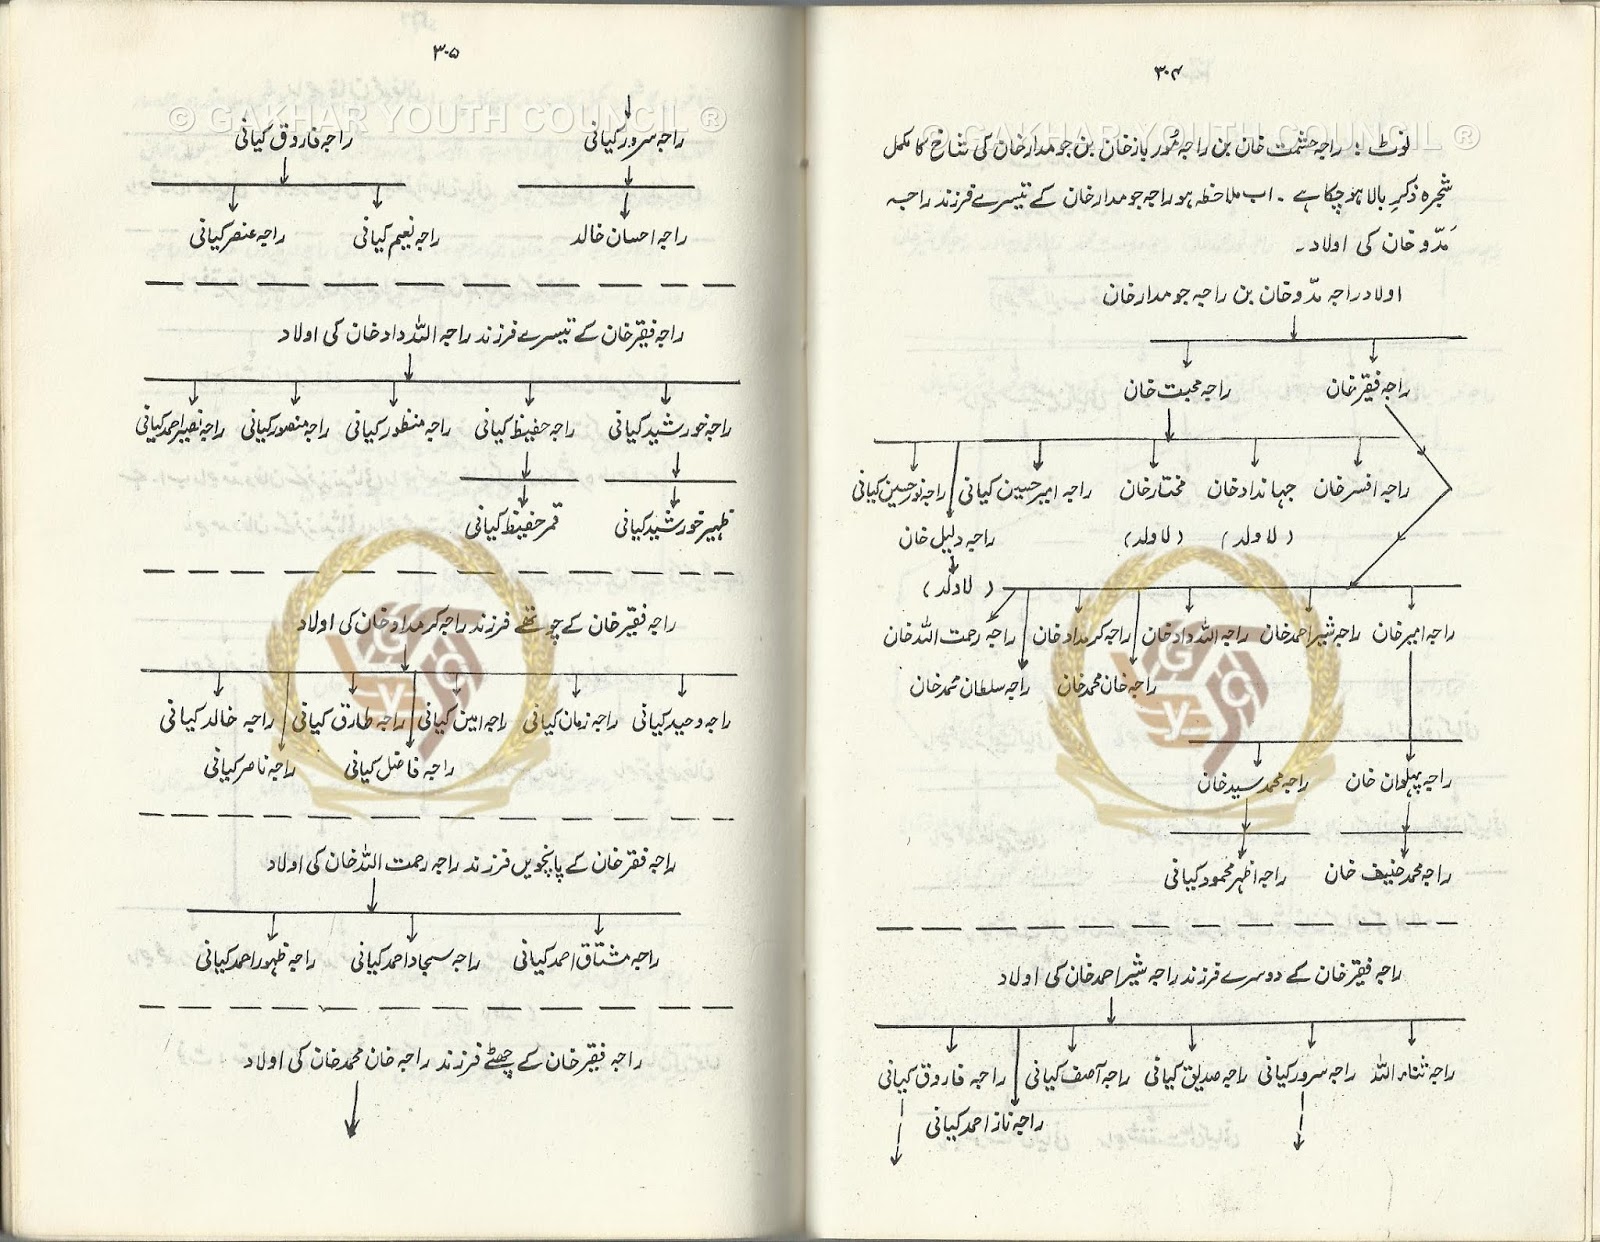 ۳۰۴
© GAKHAR YOUTH COUNCIL ®
نوٹ : راجہ حشمت خان بن راجہ نُور باز خان بن جو مدار خان کی شاخ کا مکمل
شجرہ ذکر بالا ہو چکا ہے ۔ اب ملاحظہ ہو راجہ جو مدار خان کے تیسرے فرزند راجہ
مَدّو خان کی اولاد۔
اولاد راجہ مدّو خان بن راجہ جو مدار خان
راجہ فقیر خان راجہ محبت خان
راجہ افسر خان جہانداد خان مختار خان راجہ امیر حسین کیانی راجہ نور حسین کیانی
(لا ولد) (لا ولد) راجہ دلیل خان
(لا ولد)
راجہ امیر خان راجہ شیر احمد خان راجہ اللہ داد خان راجہ کرمداد خان راجہ رحمت اللہ خان
راجہ خان محمد خان راجہ سلطان محمد خان
راجہ پہلوان خان راجہ محمد سید خان
راجہ محمد حنیف خان راجہ اظہر محمود کیانی
راجہ فقیر خان کے دوسرے فرزند راجہ شیر احمد خان کی اولاد
راجہ ثناء اللہ راجہ سرور کیانی راجہ صدیق کیانی راجہ آصف کیانی راجہ فاروق کیانی
راجہ ناز احمد کیانی
GYC
۳۰۵
© GAKHAR YOUTH COUNCIL ®
راجہ سرور کیانی راجہ فاروق کیانی
راجہ احسان خالد راجہ نعیم کیانی راجہ عنصر کیانی
راجہ فقیر خان کے تیسرے فرزند راجہ اللہ داد خان کی اولاد
راجہ خورشید کیانی راجہ حفیظ کیانی راجہ منظور کیانی راجہ منصور کیانی راجہ نصیر احمد کیانی
ظہیر خورشید کیانی قمر حفیظ کیانی
راجہ فقیر خان کے چوتھے فرزند راجہ کرمداد خان کی اولاد
راجہ وحید کیانی راجہ زمان کیانی راجہ امین کیانی راجہ طارق کیانی راجہ خالد کیانی
راجہ فاضل کیانی راجہ ناصر کیانی
راجہ فقیر خان کے پانچویں فرزند راجہ رحمت اللہ خان کی اولاد
راجہ مشتاق احمد کیانی راجہ سجاد احمد کیانی راجہ ظہور احمد کیانی
راجہ فقیر خان کے چھٹے فرزند راجہ خان محمد خان کی اولاد
GYC